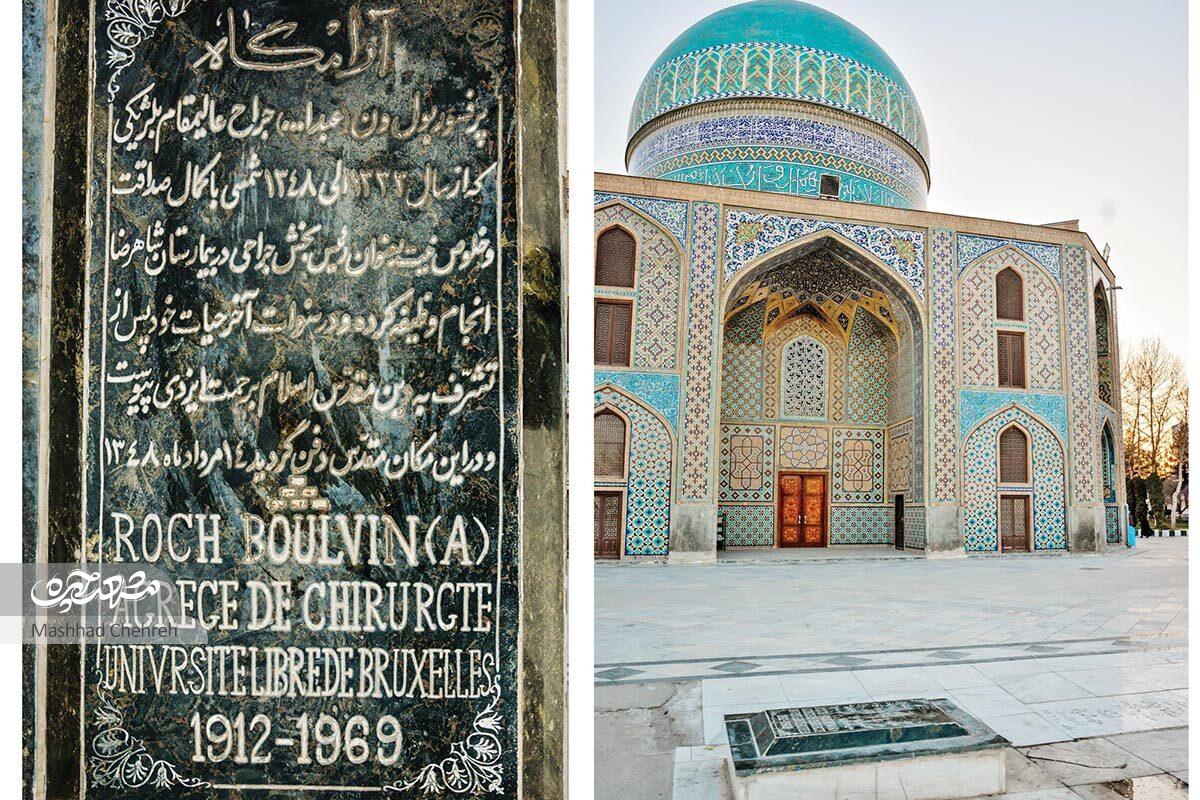 آرامگاه
پرفسور بولون (عبدا...) جراح عالیمقام بلژیکی
که از سال ۱۳۳۳ الی ۱۳۴۸ شمسی با کمال صداقت
و خلوص نیت بعنوان رئیس بخش جراحی در بیمارستان شاهرضا
انجام وظیفه کرده و در سنوات آخر حیات خود پس از
تشرف به دین مقدس اسلام برحمت ایزدی پیوست
و در این مکان مقدس دفن گردید ۱۴ مرداد ماه ۱۳۴۸
ROCH BOULVIN(A)
AGREGE DE CHIRURGTE
UNIVRSITE LIBRE DE BRUXELLES
1912-1969
مشهد چهره
Mashhad Chehreh